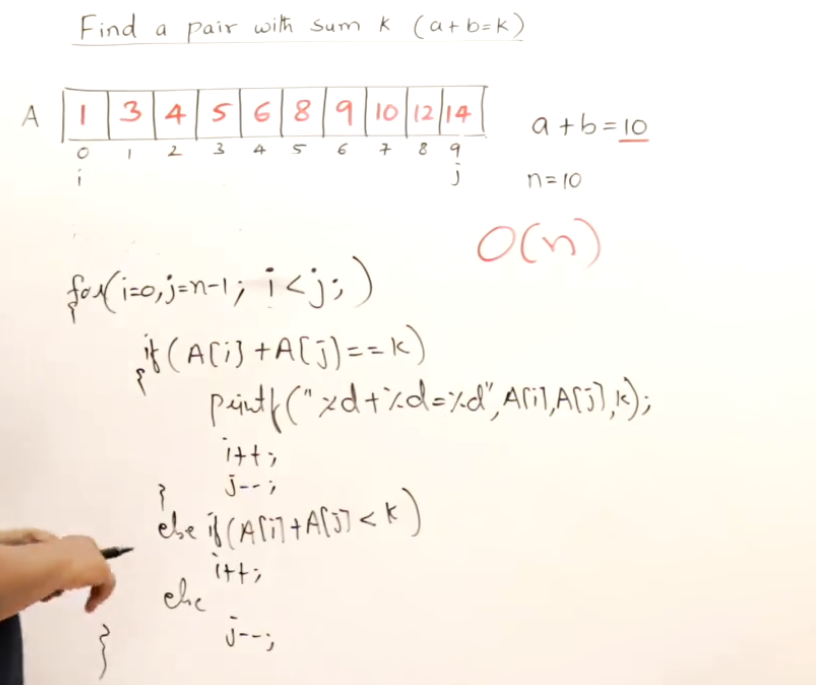 Find a pair with sum K (a+b=K)
A 1 3 4 5 6 8 9 10 12 14
0 1 2 3 4 5 6 7 8 9
i j
a+b=10
n=10
O(n)
for(i=0,j=n-1; i<j;)
{
if(A[i]+A[j]==k)
{
printf("%d+%d=%d",A[i],A[j],k);
i++;
j--;
}
else if(A[i]+A[j]<k)
i++;
else
j--;
}